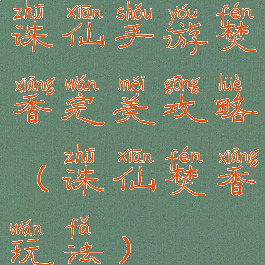 zhū xiān shǒu yóu fén
诛仙手游焚
xiāng wán měi gōng lüè
香完美攻略
zhū xiān fén xiāng
（诛仙焚香
wán fǎ
玩法）